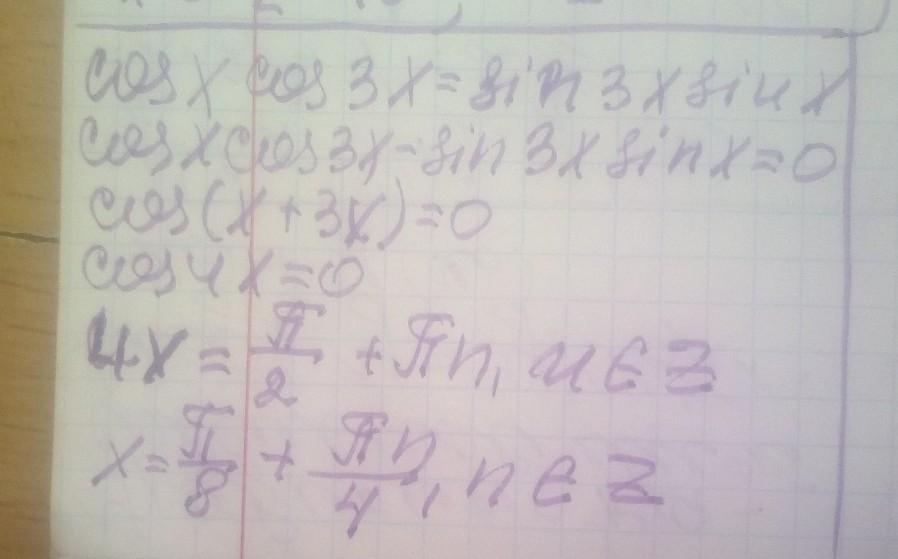 cos x cos 3x = sin 3x sin x
cos x cos 3x - sin 3x sin x = 0
cos(x + 3x) = 0
cos 4x = 0
4x = π/2 + πn, n ∈ Z
x = π/8 + πn/4, n ∈ Z